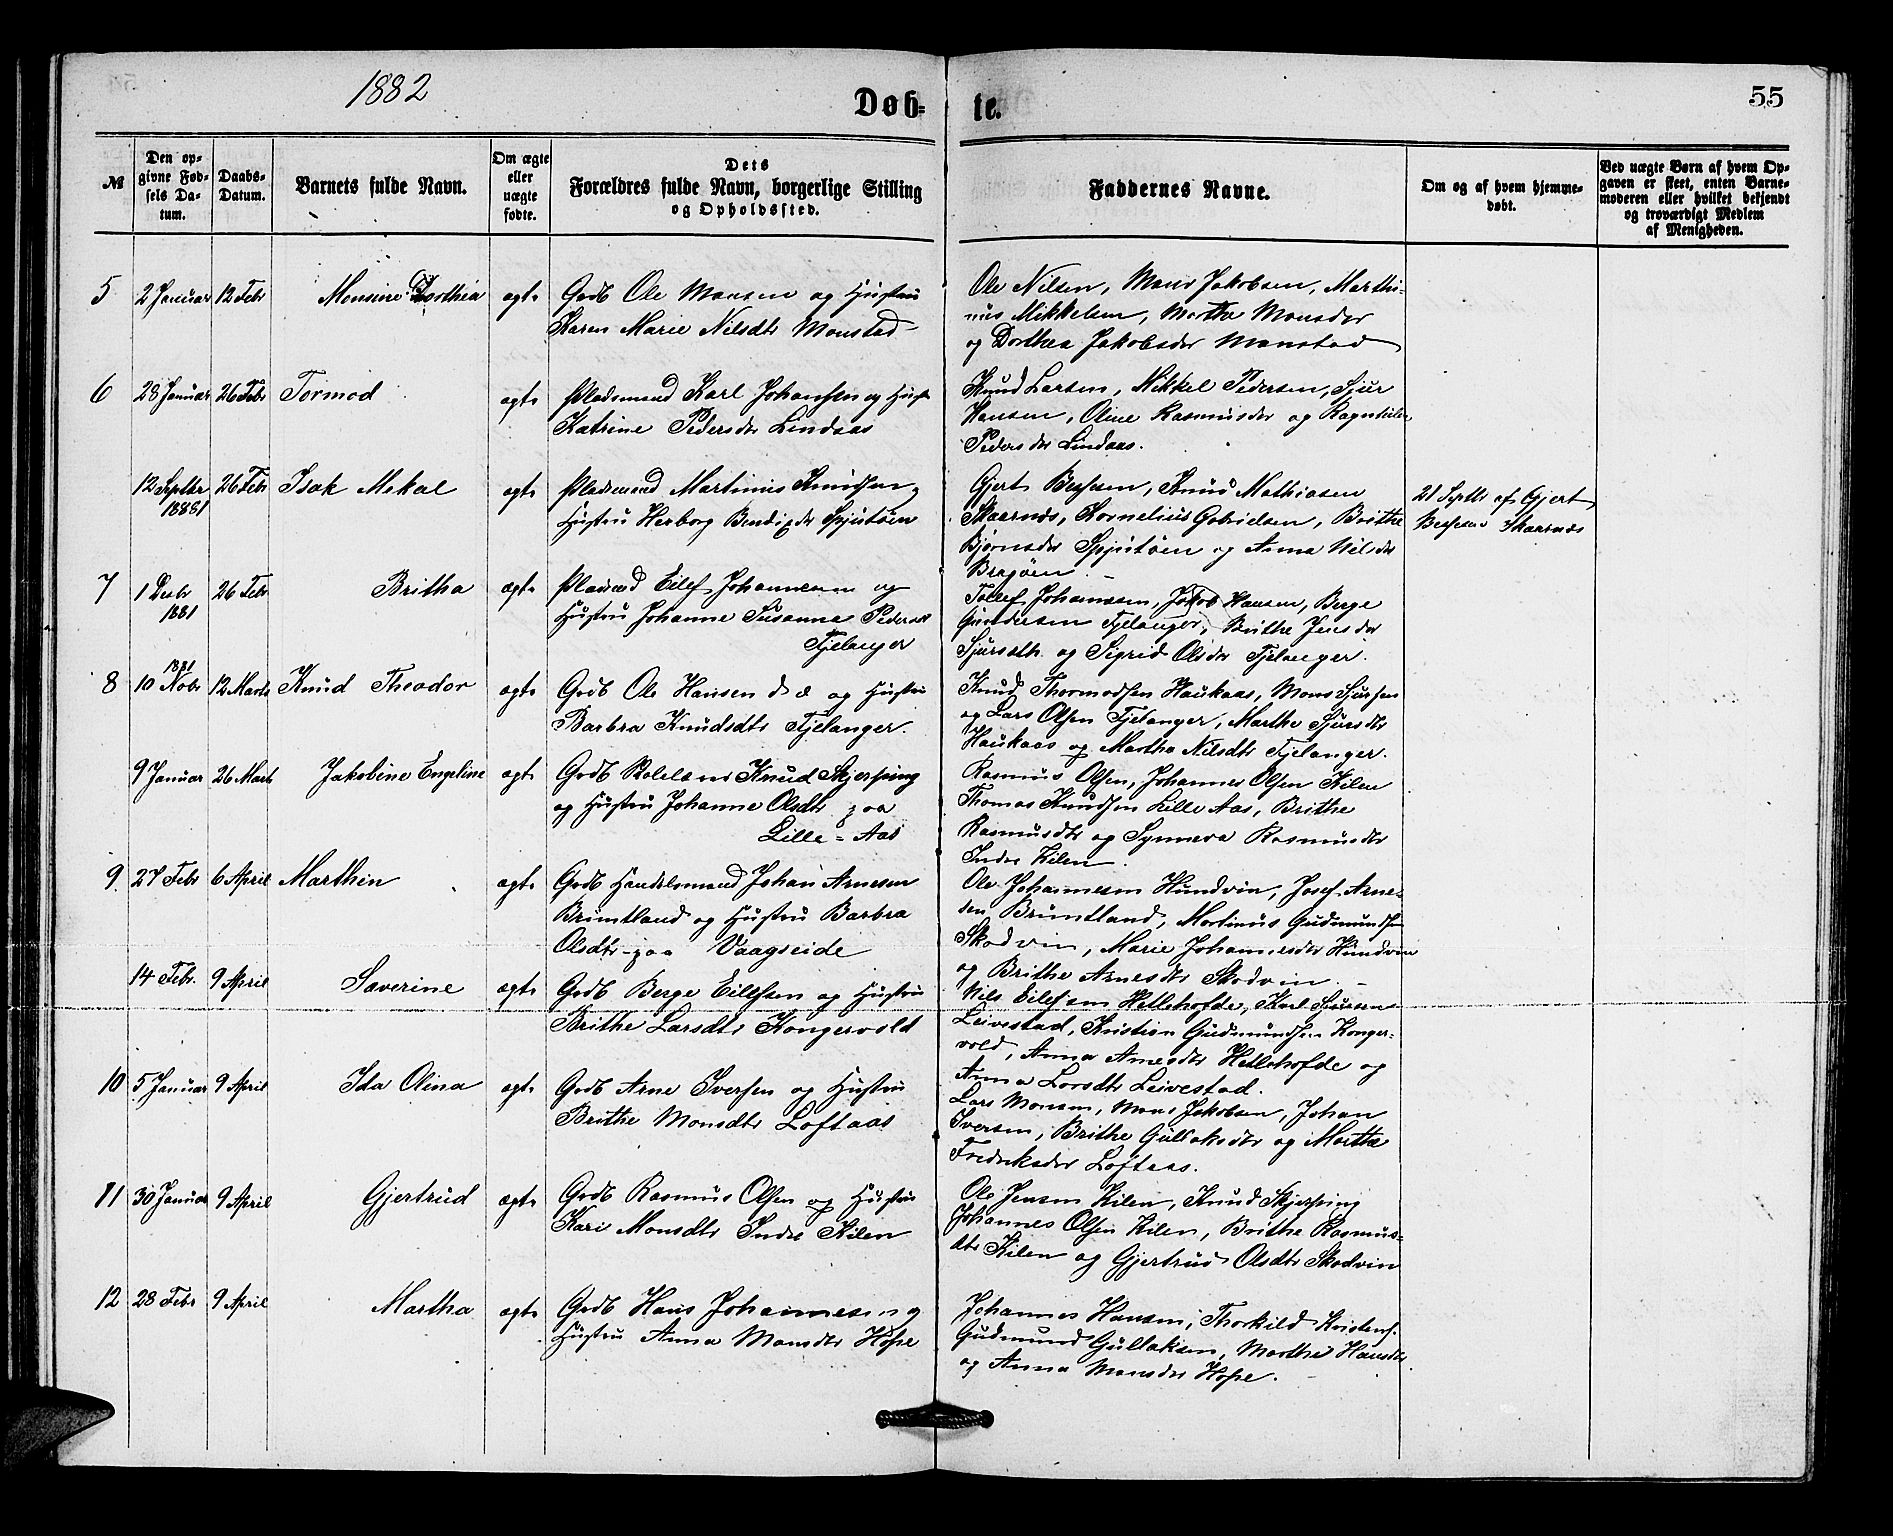 1882
Døb-
te.
55
№
Den op-
givne Fød-
sels Da-
tum.
Daabs-
Datum.
Barnets fulde Navn.
Om ægte
eller
uægte
fødte.
Dets
Forældres fulde Navn, borgerlige Stilling
og Opholdssted.
Faddernes Navne.
Om og af hvem hjemme-
døbt.
Ved uægte Børn af hvem Op-
gaven er skeet, enten Barne-
moderen eller hvilket bekjendt
og troværdigt Medlem
af Menigheden.
5 2 Januar 12 Febr Monsine Dorthea ægte
Grdb Ole Monsen og Hustru
Karen Marie Nilsdtr Monstad
Ole Nilsen, Mons Jakobsen, Marthi-
nus Mikkelsen, Marthe Monsdtr
og Dorthea Jakobsdtr Monstad
6 28 Januar 26 Febr Tormod ægte
Pladsmand Karl Johansen og Hustr
Katrine Pedersdtr Lindaas
Knud Larsen, Mikkel Pedersen, Sjur
Hansen, Oline Rasmusdtr og
Pedersdtr Lindaas.
12 Septbr 26 Febr Isak Mekal ægte
1881
Pladsmand Martinus Knudsen og
Hustru Herborg
Gjert Bessesen, Knud Mathiasen
Skaarnes, Kornelius Gabrielsen, Brithe
Bjørnsdtr og Anna Nilsdtr
21 Septbr af Gjert
Bessesen Skaarnes
7 1 Decbr 26 Febr Britha ægte
1881
Pladsmd Eilef Johannesen og
Hustru Johanne Susanna Pedersdt
Fjelanger
Tollef Johannesen, Jakob Hansen, Berge
Gundersen Fjelanger, Brithe Jensdtr
og Sigrid Olsdtr Fjelanger.
1881
8 10 Nobr 12 Marts Knud Theodor ægte
Grdb Ole Hansen d. æ og Hustru
Barbra Knudsdtr Fjelanger.
Knud Thormodsen Haukaas, Mons Sjursen
og Lars Olsen Fjelanger, Marthe Sjursdtr
Haukaas og Martha Nilsdtr Fjelanger.
9 Januar 26 Marts Jakobine Engeline ægte
Grdb Knud Skjerping
og Hustru Johanne Olsdtr paa
Lille-Aas
Rasmus Olsen, Johannes Olsen Kilen
Thomas Knudsen Lille Aas, Brithe
Rasmusdtr og Synneva Rasmusdtr
Indre Kilen.
9. 27 Febr 6 April Marthin ægte
Grdb Handelsmand Johan Arnesen
Bruntland og Hustru Barbra
Olsdtr paa Vaagseide
Ole Johannesen Hundvin, Josef Arne-
sen Bruntland, Martinus Gudmundsen
Skodvin, Marie Johannesdtr Hundvin
og Brithe Arnesdtr Skodvin.
14 Febr. 9 April Saverine ægte
Grdb Berge Eilefsen og Hustru
Brithe Larsdtr Kongervold
Nils Eilefsen Hetlehofde, Karl Sjursen
Leivestad, Kristian Gudmundsen Konger-
vold, Anna Arnesdtr Hetlehofde og
Anna Larsdtr Leivestad.
10 5 Januar 9 April Ida Olina ægte
Grdb Arne Iversen og Hustru
Brithe Monsdtr Loftaas
Lars Monsen, Mons Jakobsen, Johan
Iversen, Brithe Gullaksdtr og Marthe
Fredriksdtr Loftaas.
11 30 Januar 9 April Gjertrud ægte
Grdb Rasmus Olsen og Hustru
Kari Monsdtr Indre Kilen
Ole Jensen Kilen, Knud Skjerping
Johannes Olsen Kilen, Brithe Rasmus-
dtr Kilen og Gjertrud Olsdtr Skodvin
12 28 Febr 9 April Martha ægte
Grdb Hans Johannesen og
Hustru Anna Monsdtr Hope
Johannes Hansen, Thorkild Kristens.
Gudmund Gullaksen, Marthe Hansdtr
og Anna Monsdtr Hope.